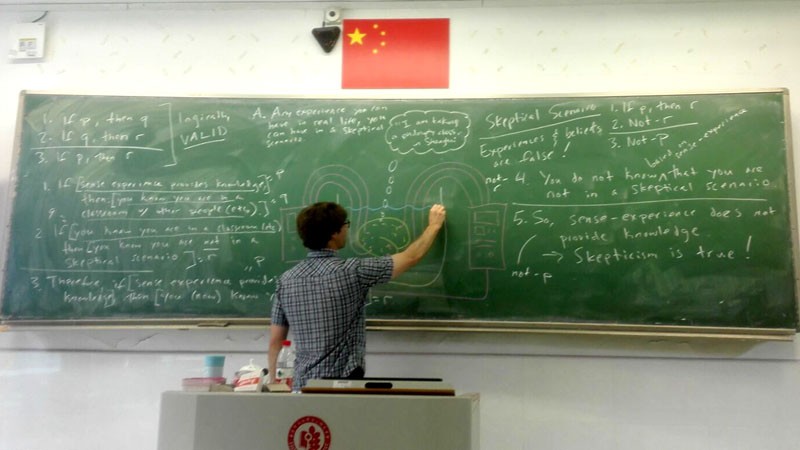 1. If p, then q
2. If q, then r
3. If p, then r
Logically
VALID
1. If [sense experience provides knowledge], p
then [you know you are in a
classroom w/ other people (etc)]. q
2. If [you know you are in a classroom (etc)]
then [you know you are not in a
skeptical scenario] = r
3. Therefore, if [sense experience provides
knowledge] then [you (etc) know
= r
A. Any experience you can
have in real life, you
can have in a skeptical
scenario.
I am taking
a philosophy class
in Shanghai
Skeptical Scenario
Experiences & beliefs
are false!
1. If p, then r
2. Not-r
3. Not-p
based on
sense-experience
not-r
4. You do not know that you are
not in a skeptical scenario
5. So, sense-experience does not
provide knowledge
→ Skepticism is true!
not-p